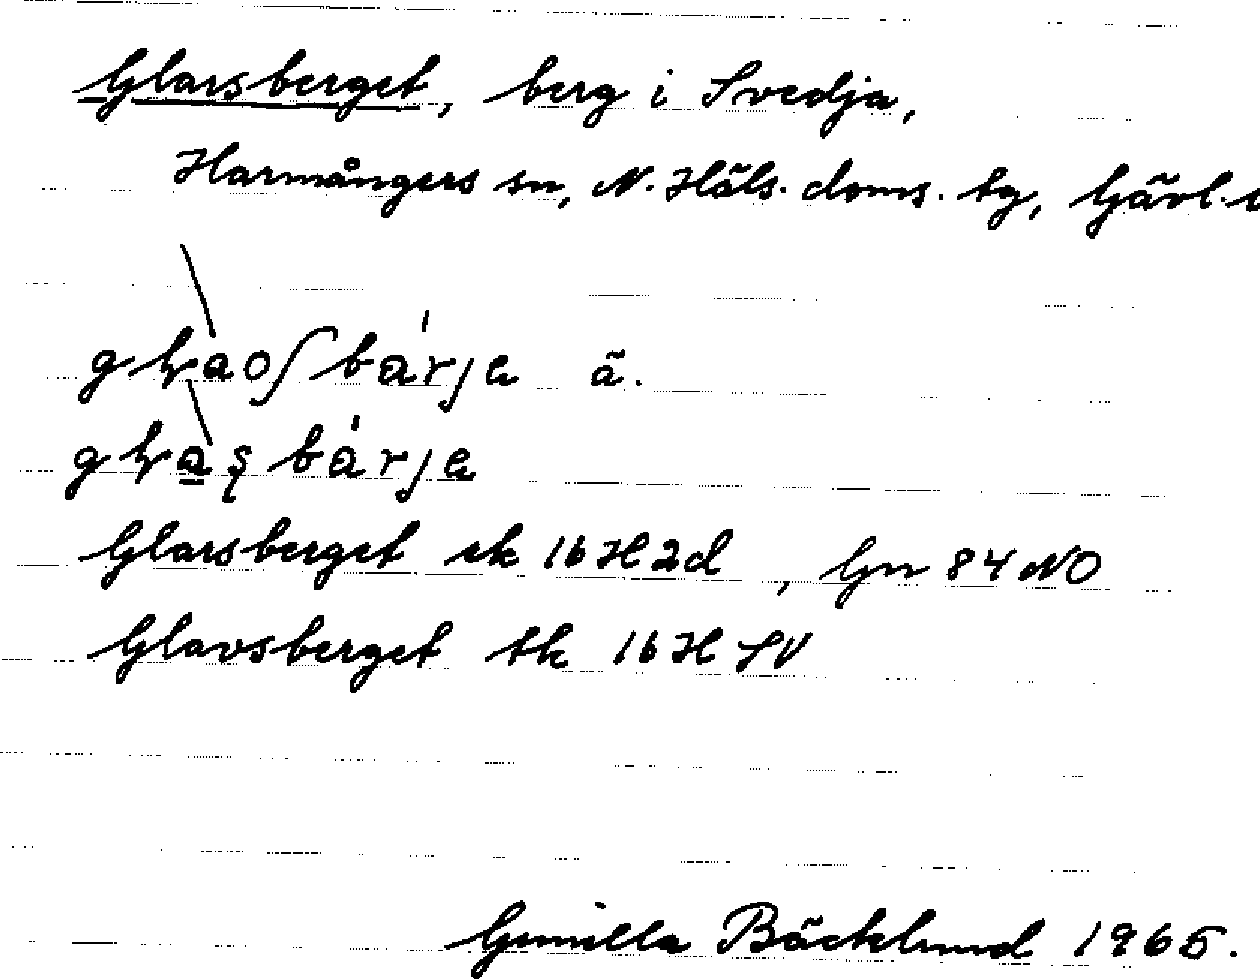 Glarsberget, berg i Svedja,
Harmångers sn, N. Häls. doms. tg, Gävl.
ä.
Glarsberget ek 16H2d, Gn 84 NO
Glavsberget tk 16H SV
Gunilla Bäcklund 1965.